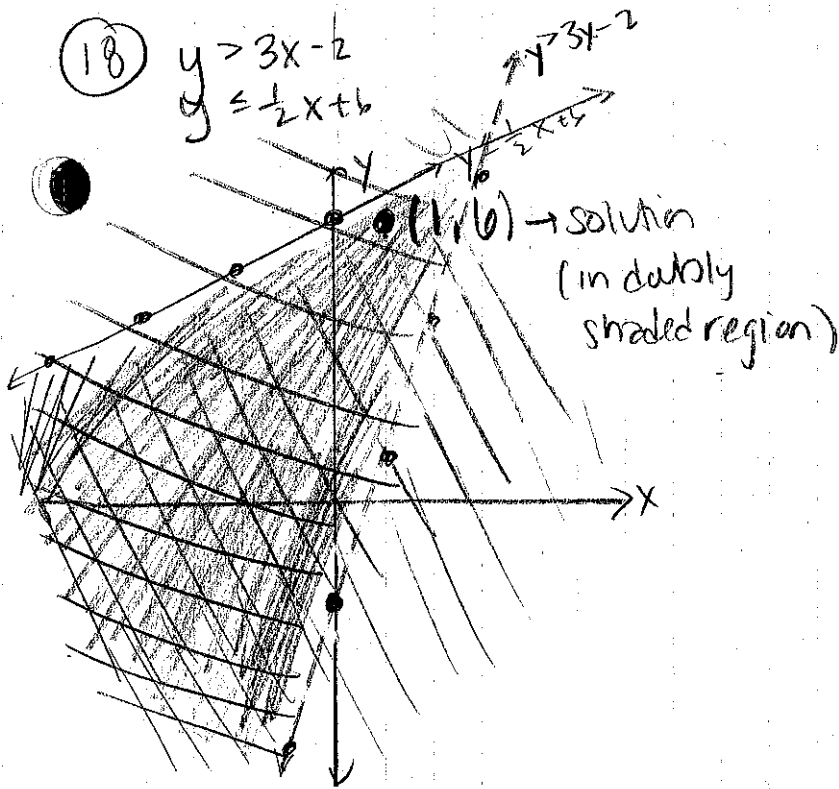 18 y > 3x-2
y ≤ 1/2x+6
y>3x-2
y ≤ 1/2x+6
Y
(1,6) → solution
(in dubly
shaded region)
X